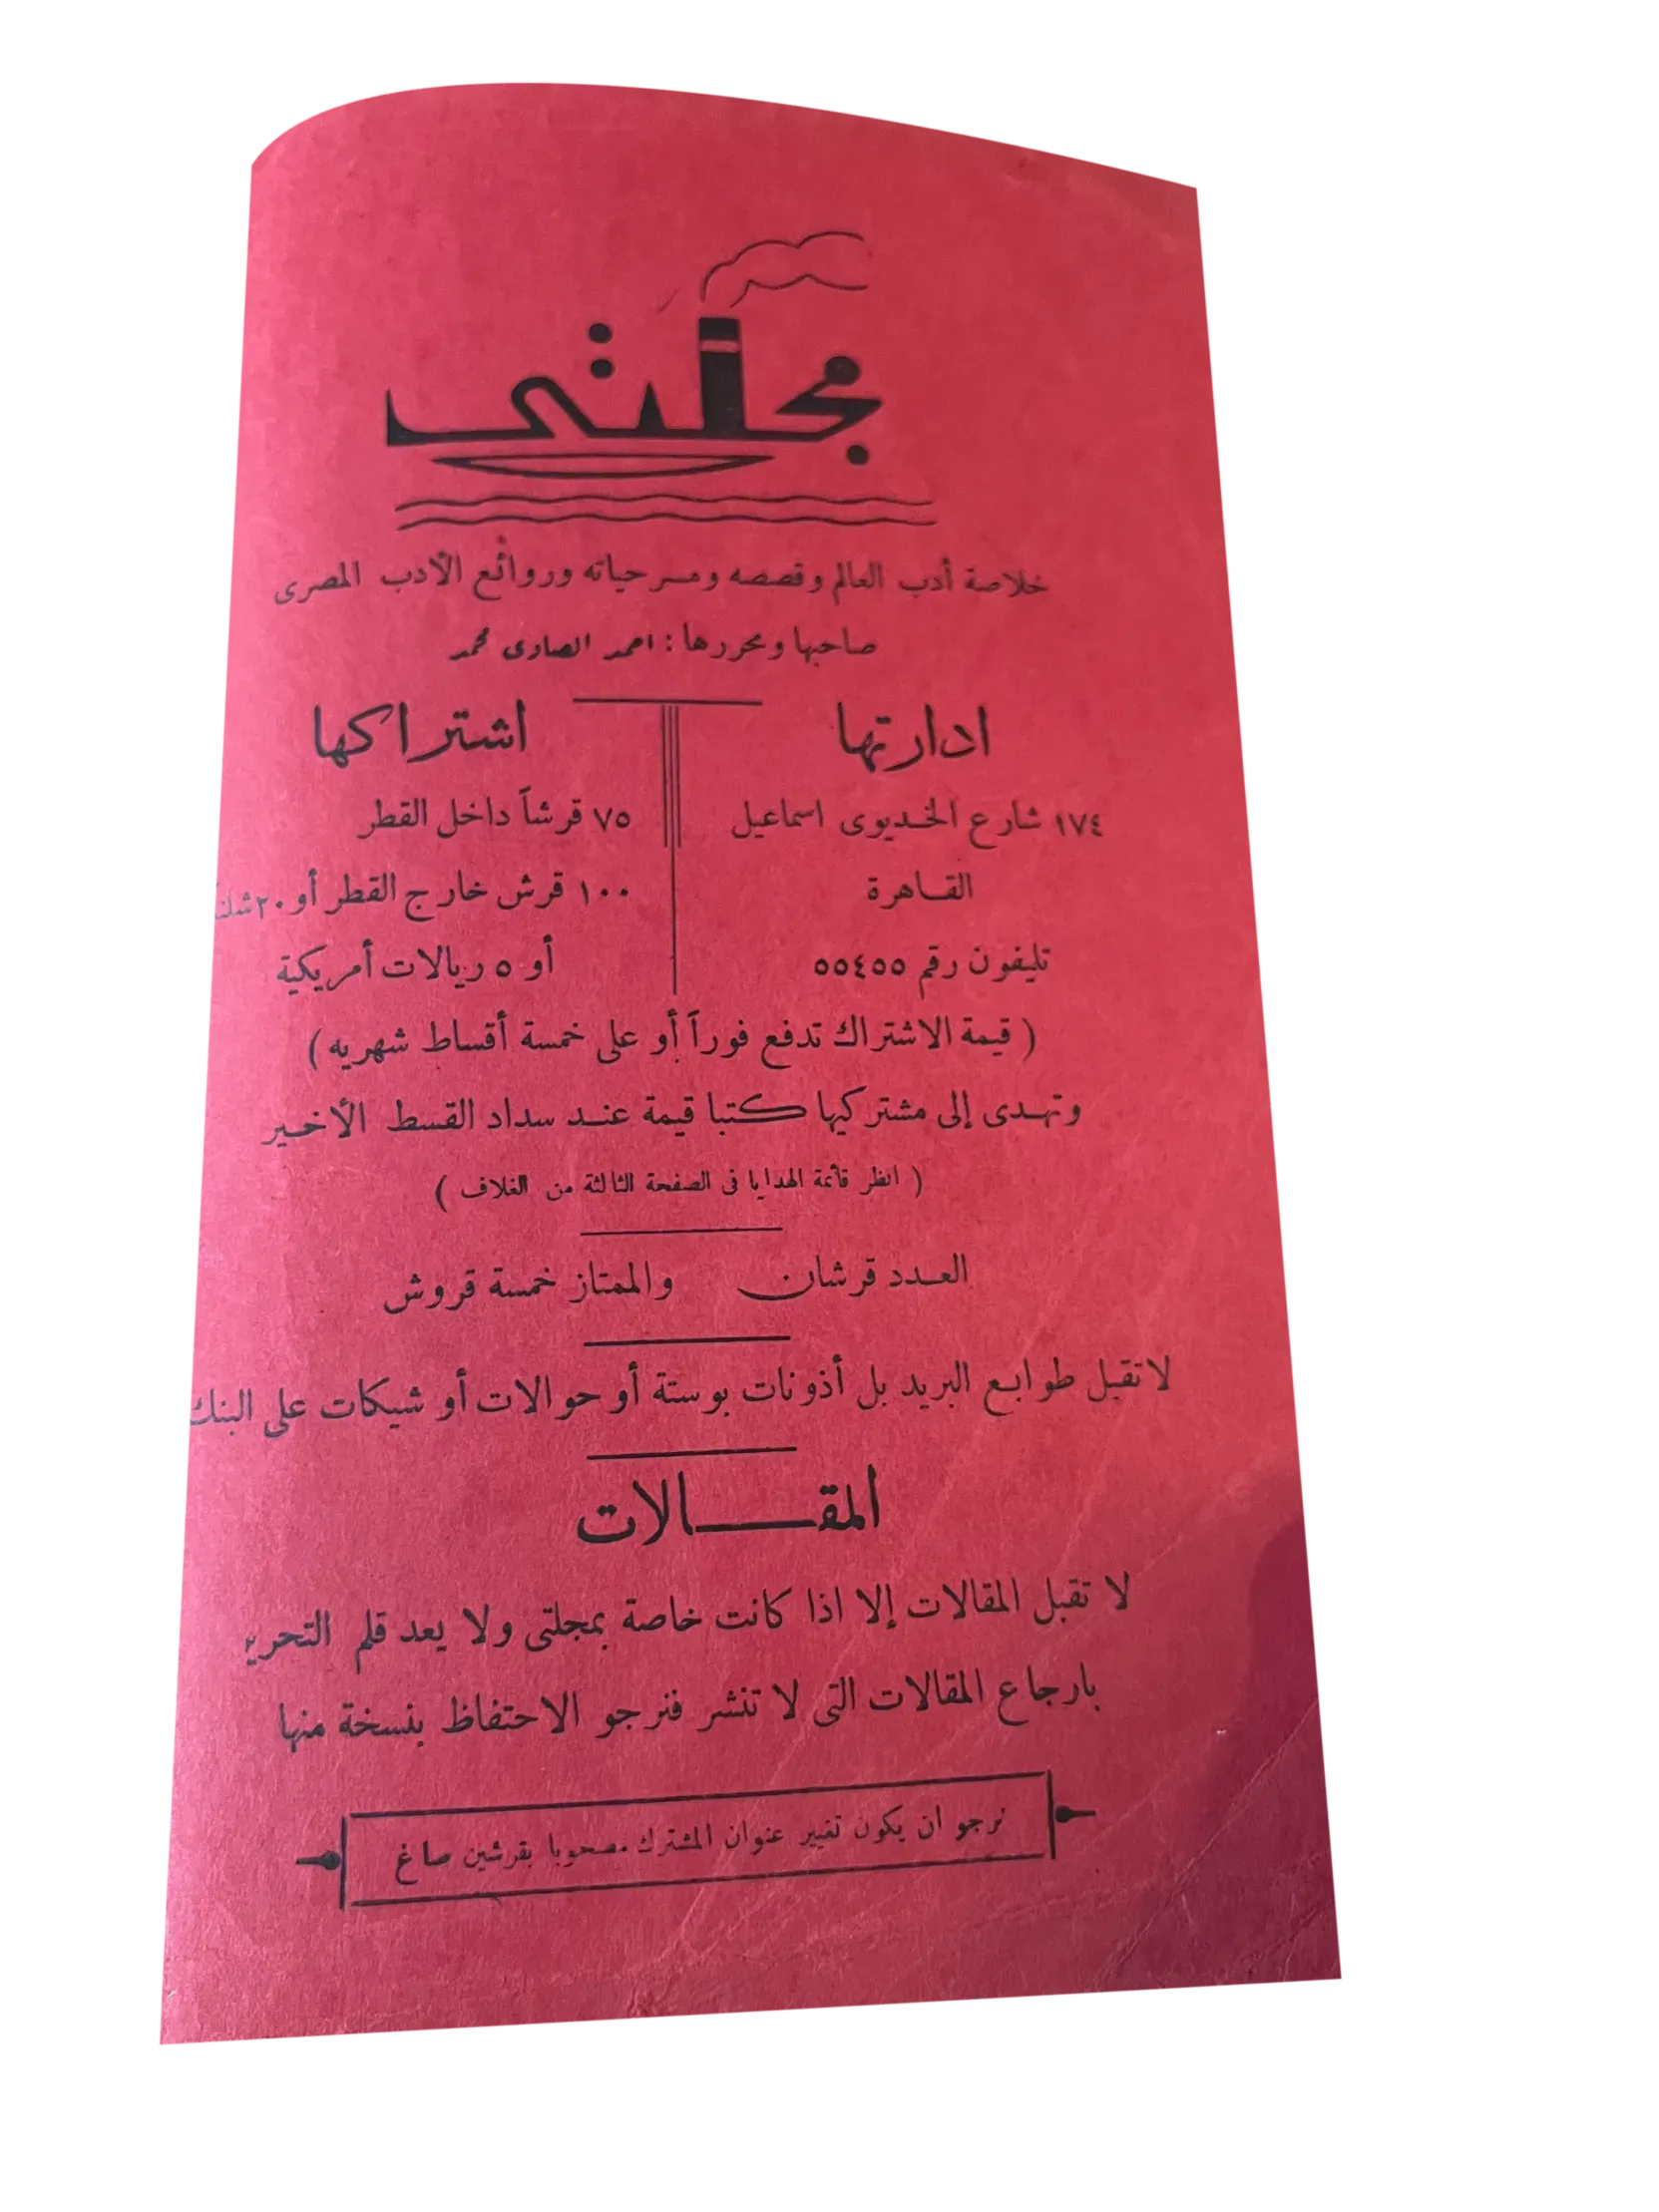 مجلتى
خلاصة أدب العالم وقصصه ومسرحياته وروائع الأدب المصرى
صاحبها ومحررها : احمد الصاوى محمد
ادارتها
١٧٤ شارع الخديوى اسماعيل
القاهرة
تليفون رقم ٥٥٤٥٥
اشتراكها
٧٥ قرشاً داخل القطر
١٠٠ قرش خارج القطر أو ٢٠
أو ٥ ريالات أمريكية
( قيمة الاشتراك تدفع فوراً أو على خمسة أقساط شهريه )
وتهدى إلى مشتركيها كتبا قيمة عند سداد القسط الأخير
( انظر قائمة الهدايا فى الصفحة الثالثة من الغلاف )
العدد قرشان والممتاز خمسة قروش
لا تقبل طوابع البريد بل أذونات بوستة أو حوالات أو شيكات على البنك
المقالات
لا تقبل المقالات إلا اذا كانت خاصة بمجلتى ولا يعد قلم التحرير
بارجاع المقالات التى لا تنشر فنرجو الاحتفاظ بنسخة منها
نرجو ان يكون تغيير عنوان المشترك مصحوبا بقرشين صاغ